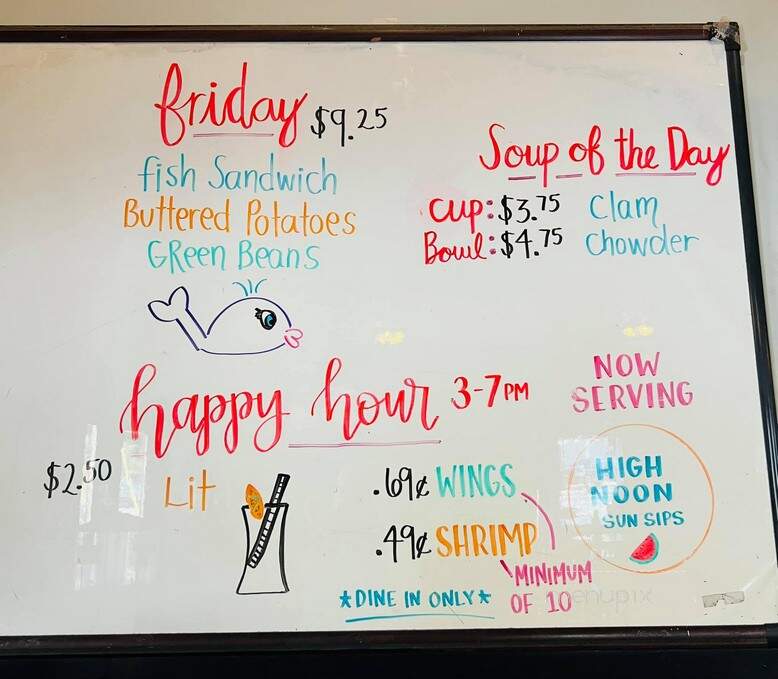 friday $9.25
fish Sandwich
Buttered Potatoes
GReen Beans
Soup of the Day
cup: $3.75 Clam
Bowl: $4.75 chowder
happy hour 3-7PM
$2.50 Lit
.69¢ WINGS
.49¢ SHRIMP
MINIMUM
OF 10
*DINE IN ONLY*
NOW
SERVING
HIGH
NOON
SUN SIPS
menupix